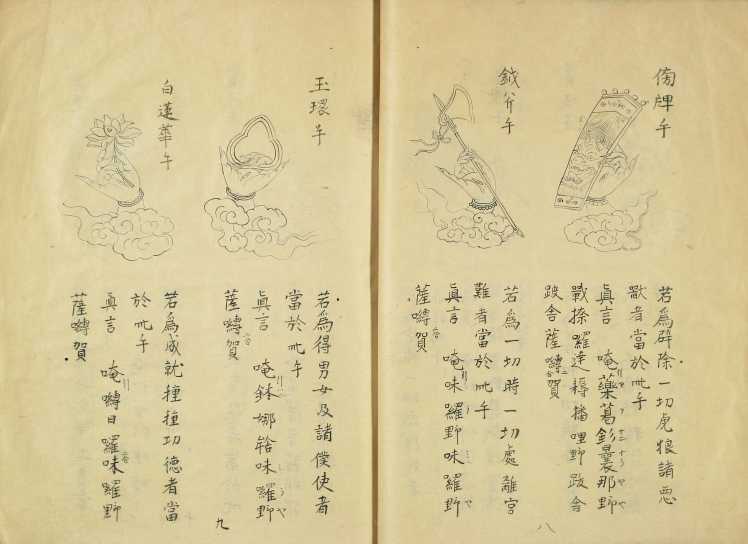 傍牌手
若為辟除一切虎狼諸惡
獸者當於此手
真言 唵藥葛釤曩那野
戰捺羅達耨播哩野跋舍
跋舍薩嚩二合賀
鉞斧手
若為一切時一切處離官
難者當於此手
真言 唵味羅野味羅野
薩嚩二合賀
八
玉環手
若為得男女及諸僕使者
當於此手
真言 唵鉢娜𤚥味羅野
薩嚩二合賀
白蓮華手
若為成就種種功德者當
於此手
真言 唵嚩日羅二合味羅野
薩嚩賀
九